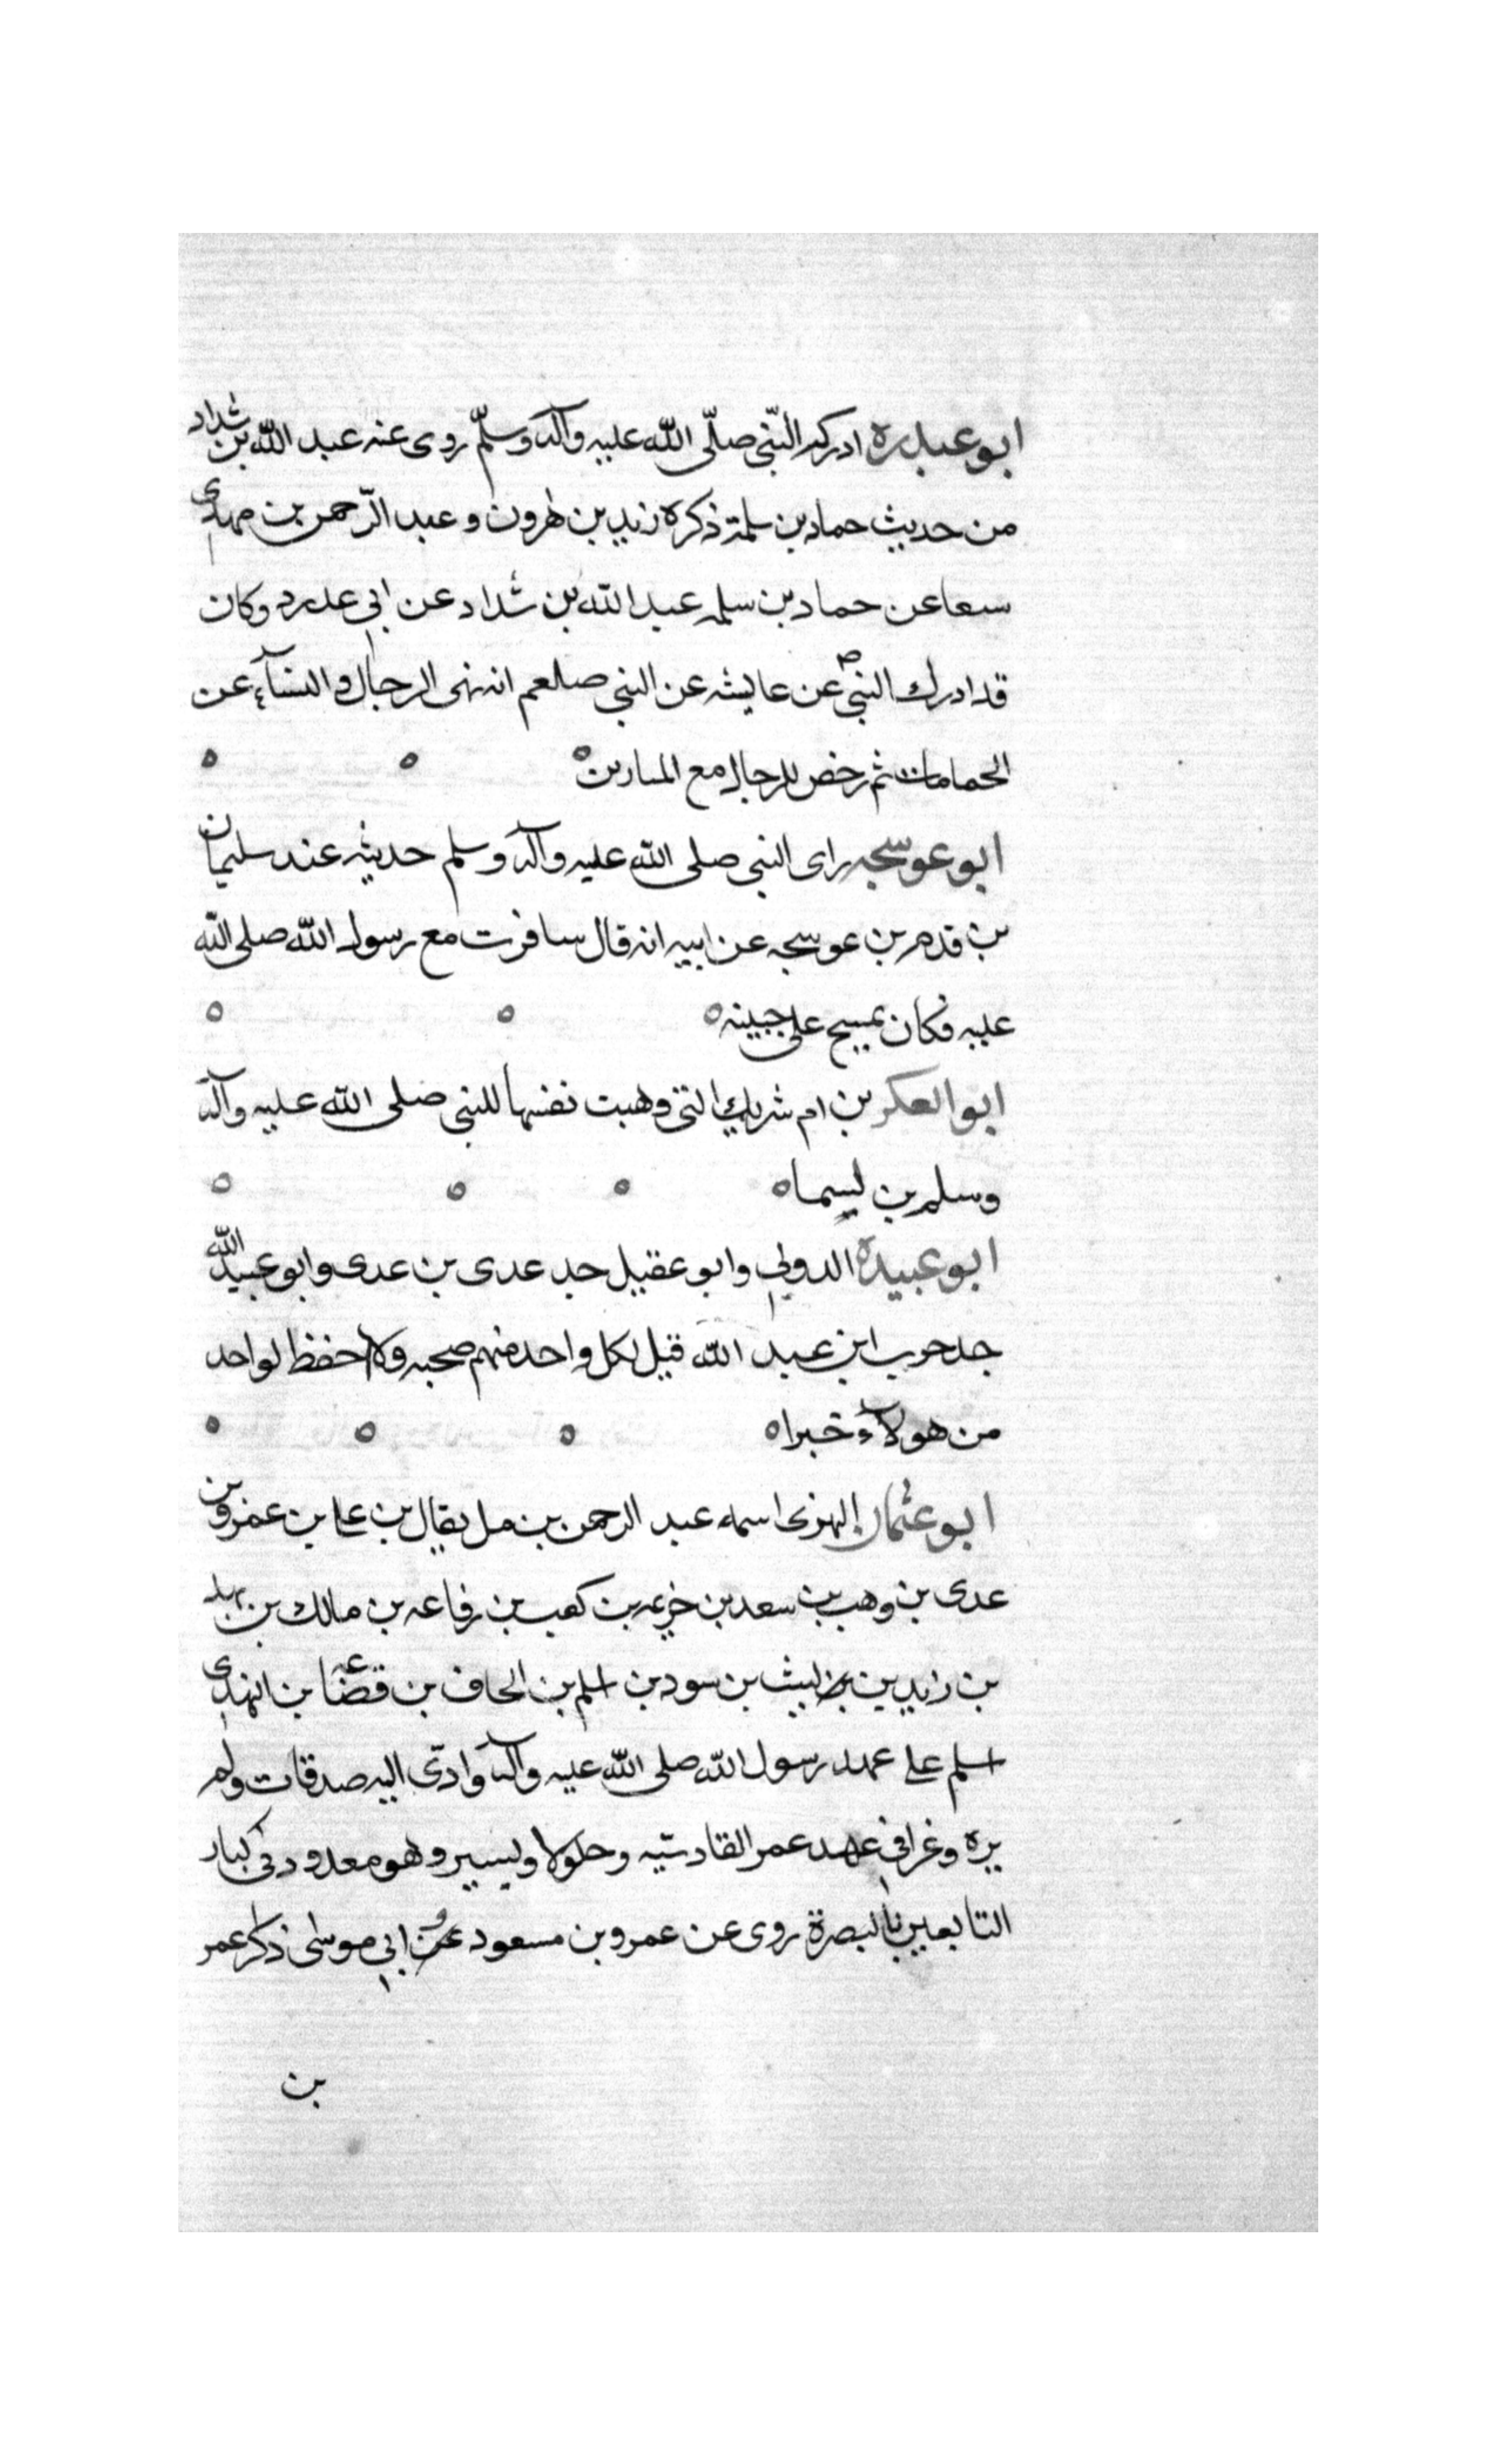 ابو عبدره ادركه النّبى صلّى اللّٰه عليه وآله وسلّم روى عنه عبد اللّٰه بن شداد
من حديث حماد بن سلمة ذكره زيد بن هرون و عبد الرّحمن بن مهدى
سمعا عن حماد بن سلمه عبد اللّٰه بن شداد عن ابى عدرد وكان
قد ادرك النبى ص عن عايشه عن النبى صلعم انه نهى الرجال والنسآء عن
الحمامات ثم رخص للرجال مع
ابو عوسجه راى النبى صلى اللّٰه عليه وآله وسلم حديثه عند سليمان
بن قدم بن عوسجه عن ابيه انه قال سافرت مع رسول اللّٰه صلى اللّٰه
عليه فكان يمسح على جبينه
ابو العكر بن ام شريك التى وهبت نفسها للنبى صلى اللّٰه عليه وآله
وسلم بن ليسما
ابو عبيده الدولى وابو عقيل جد عدى بن عدى وابو عبيد اللّٰه
جد حرب ابن عبد اللّٰه قيل لكل واحد منهم صحبه ولا احفظ لواحد
من هولآء خبرا
ابو عثمان النهدى اسمه عبد الرحمن بن مل يقال بن على بن عمرو بن
عدى بن وهب بن سعد بن خزيمه بن كعب بن رفاعه بن مالك بن نهد
بن زيد بن ليث بن سود بن اسلم بن الحاف بن قضاعه بن النهدى
اسلم على عهد رسول اللّٰه صلى اللّٰه عليه وآله وادّى اليه صدقات ولم
يره وغزا فى عهد عمر القادسيه وجلولا وليسير وهو معدود فى كبار
التابعين بالبصرة روى عن عمر وبن مسعود وعن ابى موسى ذكر عمر
بن